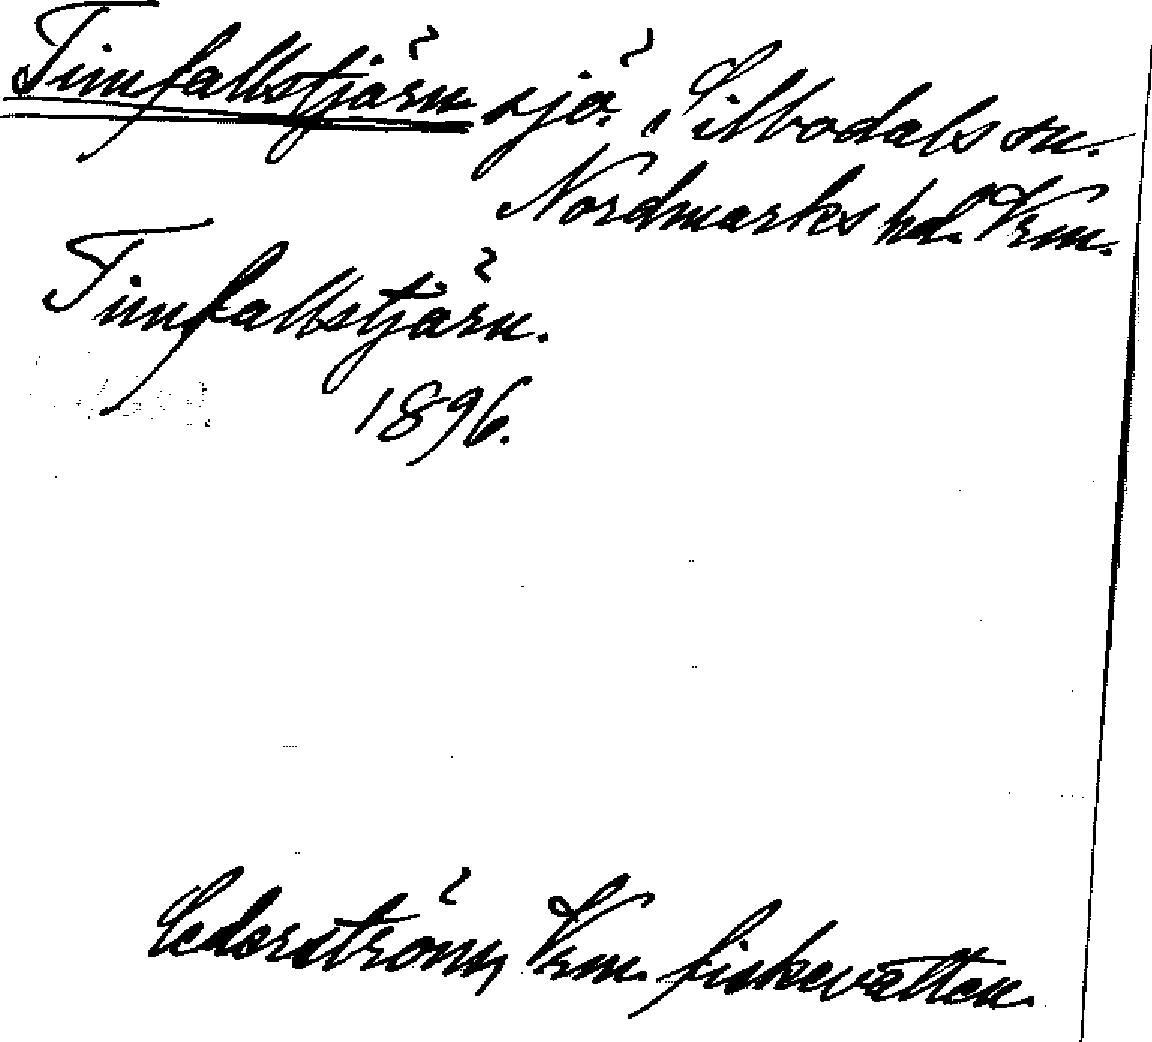 Timfallstjärn sjö, Silbodals sn.
Nordmarks hd. Vrm.
Timfallstjärn.
1896.
Cederström, Vrm. fiskevatten.